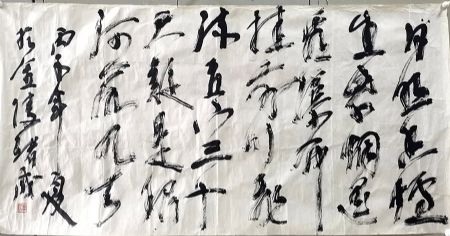 日照香爐
生紫烟遥
看瀑布
挂前川飛
流直下三千
尺疑是銀
河落九天
丙年夏
於金陵